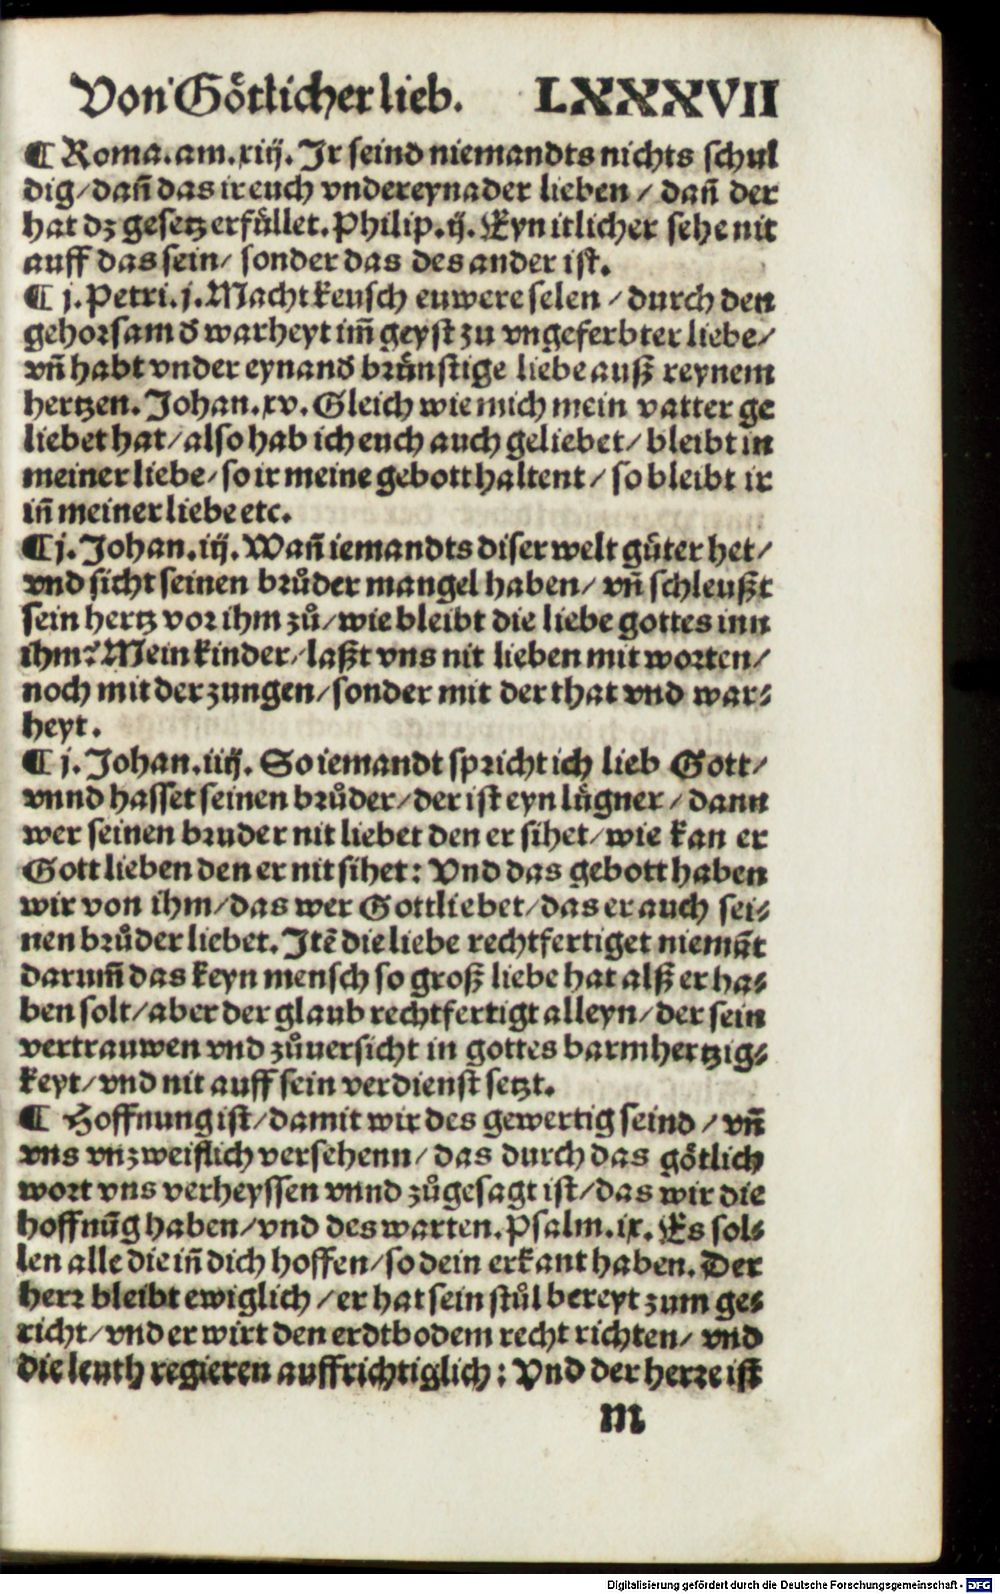 Von Goͤtlicher lieb. LXXXVII
¶ Roma. am. xiij. Ir seind niemandts nichts schul
dig/ dañ das ir euch vndereynader lieben / dañ der
hat dz gesetz erfuͤllet. Philip. ij. Eyn itlicher sehe nit
auff das sein/ sonder das des ander ist.
¶ j. Petri. j. Macht keusch euwere selen / durch den
gehorsam đ warheyt im̃ geyst zu vngeferbter liebe/
vñ habt vnder eynanđ bruͤnstige liebe auß reynem
hertzen. Johan. xv. Gleich wie mich mein vatter ge
liebet hat/ also hab ich euch auch geliebet/ bleibt in
meiner liebe/ so ir meine gebott haltent / so bleibt ir
iñ meiner liebe etc.
¶ j. Johan. iij. Wañ iemandts diser welt guͤter het/
vnd sicht seinen bruͦder mangel haben/ vñ schleußt
sein hertz vor ihm zuͦ/ wie bleibt die liebe gottes inn
ihm? Mein kinder/ laßt vns nit lieben mit worten/
noch mit der zungen/ sonder mit der that vnd war⸗
heyt.
¶ j. Johan. iiij. So iemandt spricht ich lieb Gott/
vnnd hasset seinen bruͦder/ der ist eyn luͤgner / dann
wer seinen bruder nit liebet den er sihet/ wie kan er
Gott lieben den er nit sihet: Vnd das gebott haben
wir von ihm/ das wer Gott liebet/ das er auch sei⸗
nen bruͦder liebet. Itẽ die liebe rechtfertiget niemãt
darum̃ das keyn mensch so groß liebe hat alß er ha⸗
ben solt/ aber der glaub rechtfertigt alleyn/ der sein
vertrauwen vnd zuͦuersicht in gottes barmhertzig⸗
keyt/ vnd nit auff sein verdienst setzt.
¶ Hoffnung ist/ damit wir des gewertig seind / vñ
vns vnzweiflich versehenn/ das durch das goͤtlich
wort vns verheyssen vnnd zuͦgesagt ist/ das wir die
hoffnũg haben/ vnd des warten. Psalm. ix. Es sol⸗
len alle die iñ dich hoffen/ so dein erkant haben. Der
herr bleibt ewiglich / er hat sein stuͦl bereyt zum ge⸗
richt/ vnd er wirt den erdtbodem recht richten/ vnd
die leuth regieren auffrichtiglich: Vnd der herre ist
M
Digitalisierung gefördert durch die Deutsche Forschungsgemeinschaft - DFG